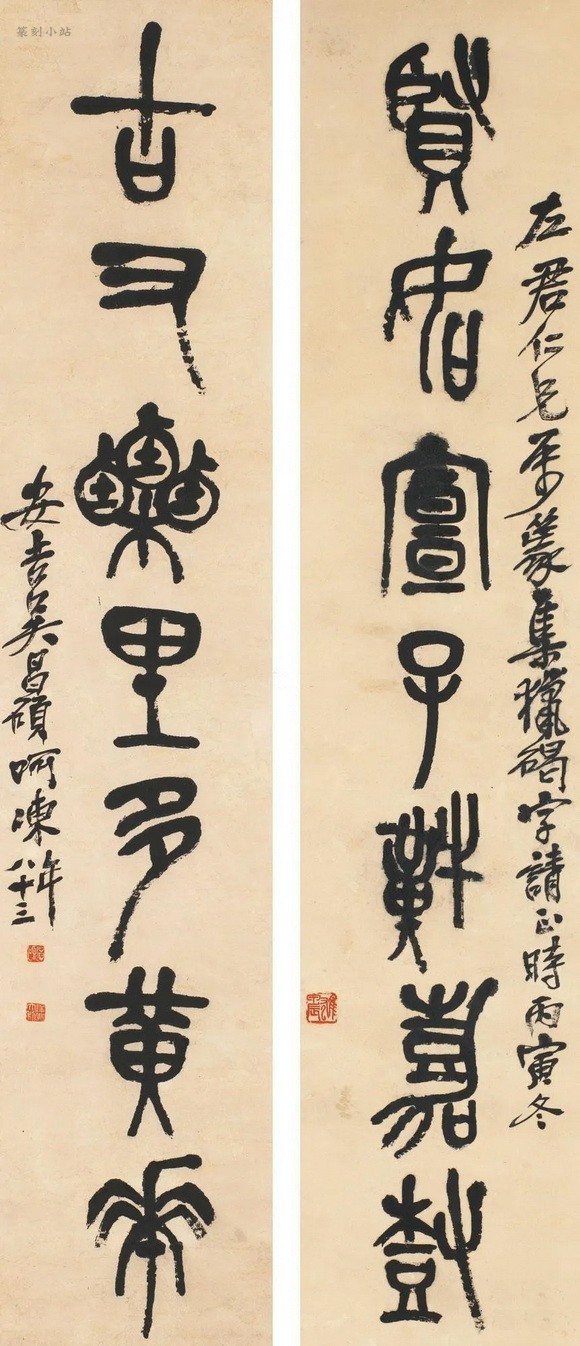 左君仁兄屬篆集獵碣字請正時丙寅冬
賢宣子嘉樹
古又樂里多黃
安吉吳昌碩呵凍年八十三
篆刻小站